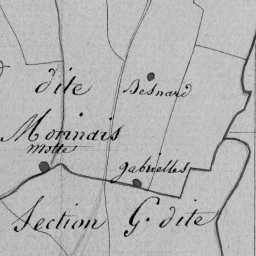 dite
Besnard
Morinais
Motte
gabrielles
Section G. dite